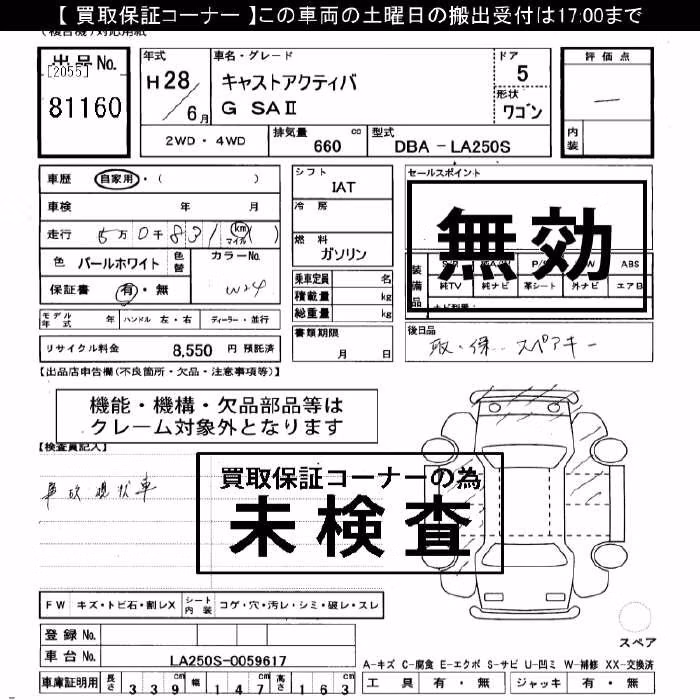 【 買取保証コーナー 】この車両の土曜日の搬出受付は17:00まで
出品No.
[2055]
81160
年式
H28
6月
車名・グレード
キャストアクティバ
G SAⅡ
ドア
5
形状
ワゴン
評価点
内装
2WD・4WD
排気量
660 cc
型式
DBA - LA250S
車歴
自家用・( )
車検 年 月
走行 5万0千831(km マイル)
色 パールホワイト
色替
カラーNo.
W24
保証書 有・無
モデル年式 年
ハンドル 左・右
ディーラー・並行
リサイクル料金 8,550 円 預託済
シフト
IAT
冷房
燃料
ガソリン
乗車定員 名
積載量 kg
総重量 kg
書類期限
月 日
セールスポイント
無効
装備品
ABS
純TV 純ナビ 革シート 外ナビ エアB
後日品
取・保 スペアキー
【出品店申告欄(不良箇所・欠品・注意事項等)】
機能・機構・欠品部品等は
クレーム対象外となります
【検査員記入】
事故現状車
買取保証コーナーの為
未検査
FW キズ・トビ石・割レX
シート内装 コゲ・穴・汚レ・シミ・破レ・スレ
登録No.
車台No. LA250S-0059617
車庫証明用 長さ 339 幅 147 高さ 163
スペア
A-キズ C-腐食 E-エクボ S-サビ U-凹ミ W-補修 XX-交換済
工具 有・無 ジャッキ 有・無